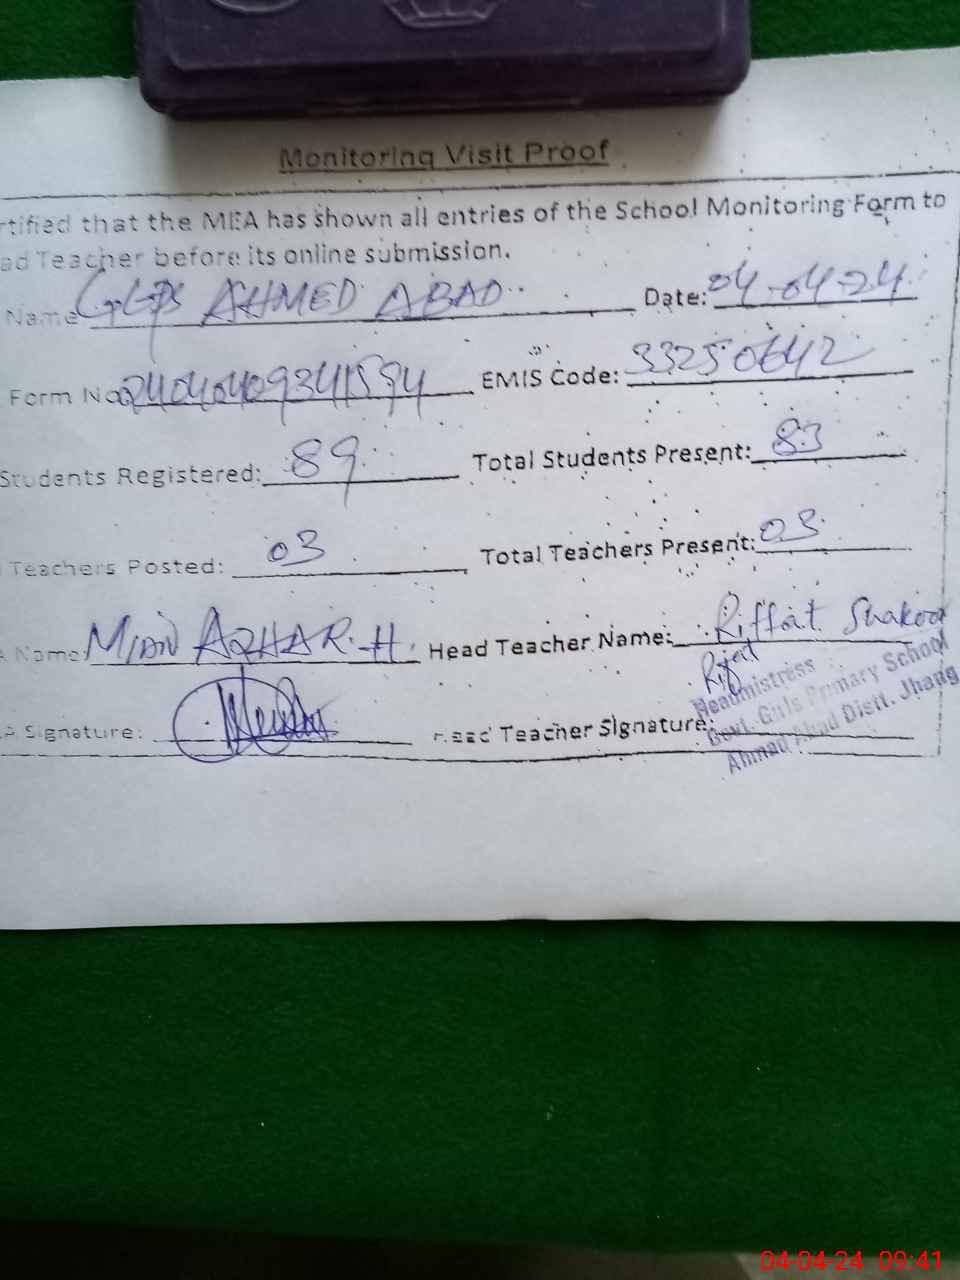 Monitoring Visit Proof
rtified that the MEA has shown all entries of the School Monitoring Form to
ad Teacher before its online submission.
Name GGPS AHMED ABAD Date: 04-04-24
Form No 024040409341594 EMIS Code: 33250642
Students Registered: 89 Total Students Present: 83
Teachers Posted: 03 Total Teachers Present: 03
A Name MIAN AZHAR-H Head Teacher Name: Riffat Shakoor
Riffat
Headmistress
A Signature: Head Teacher Signature: Govt. Girls Primary School
Ahmad Abad Distt. Jhang
04-04-24 09:41